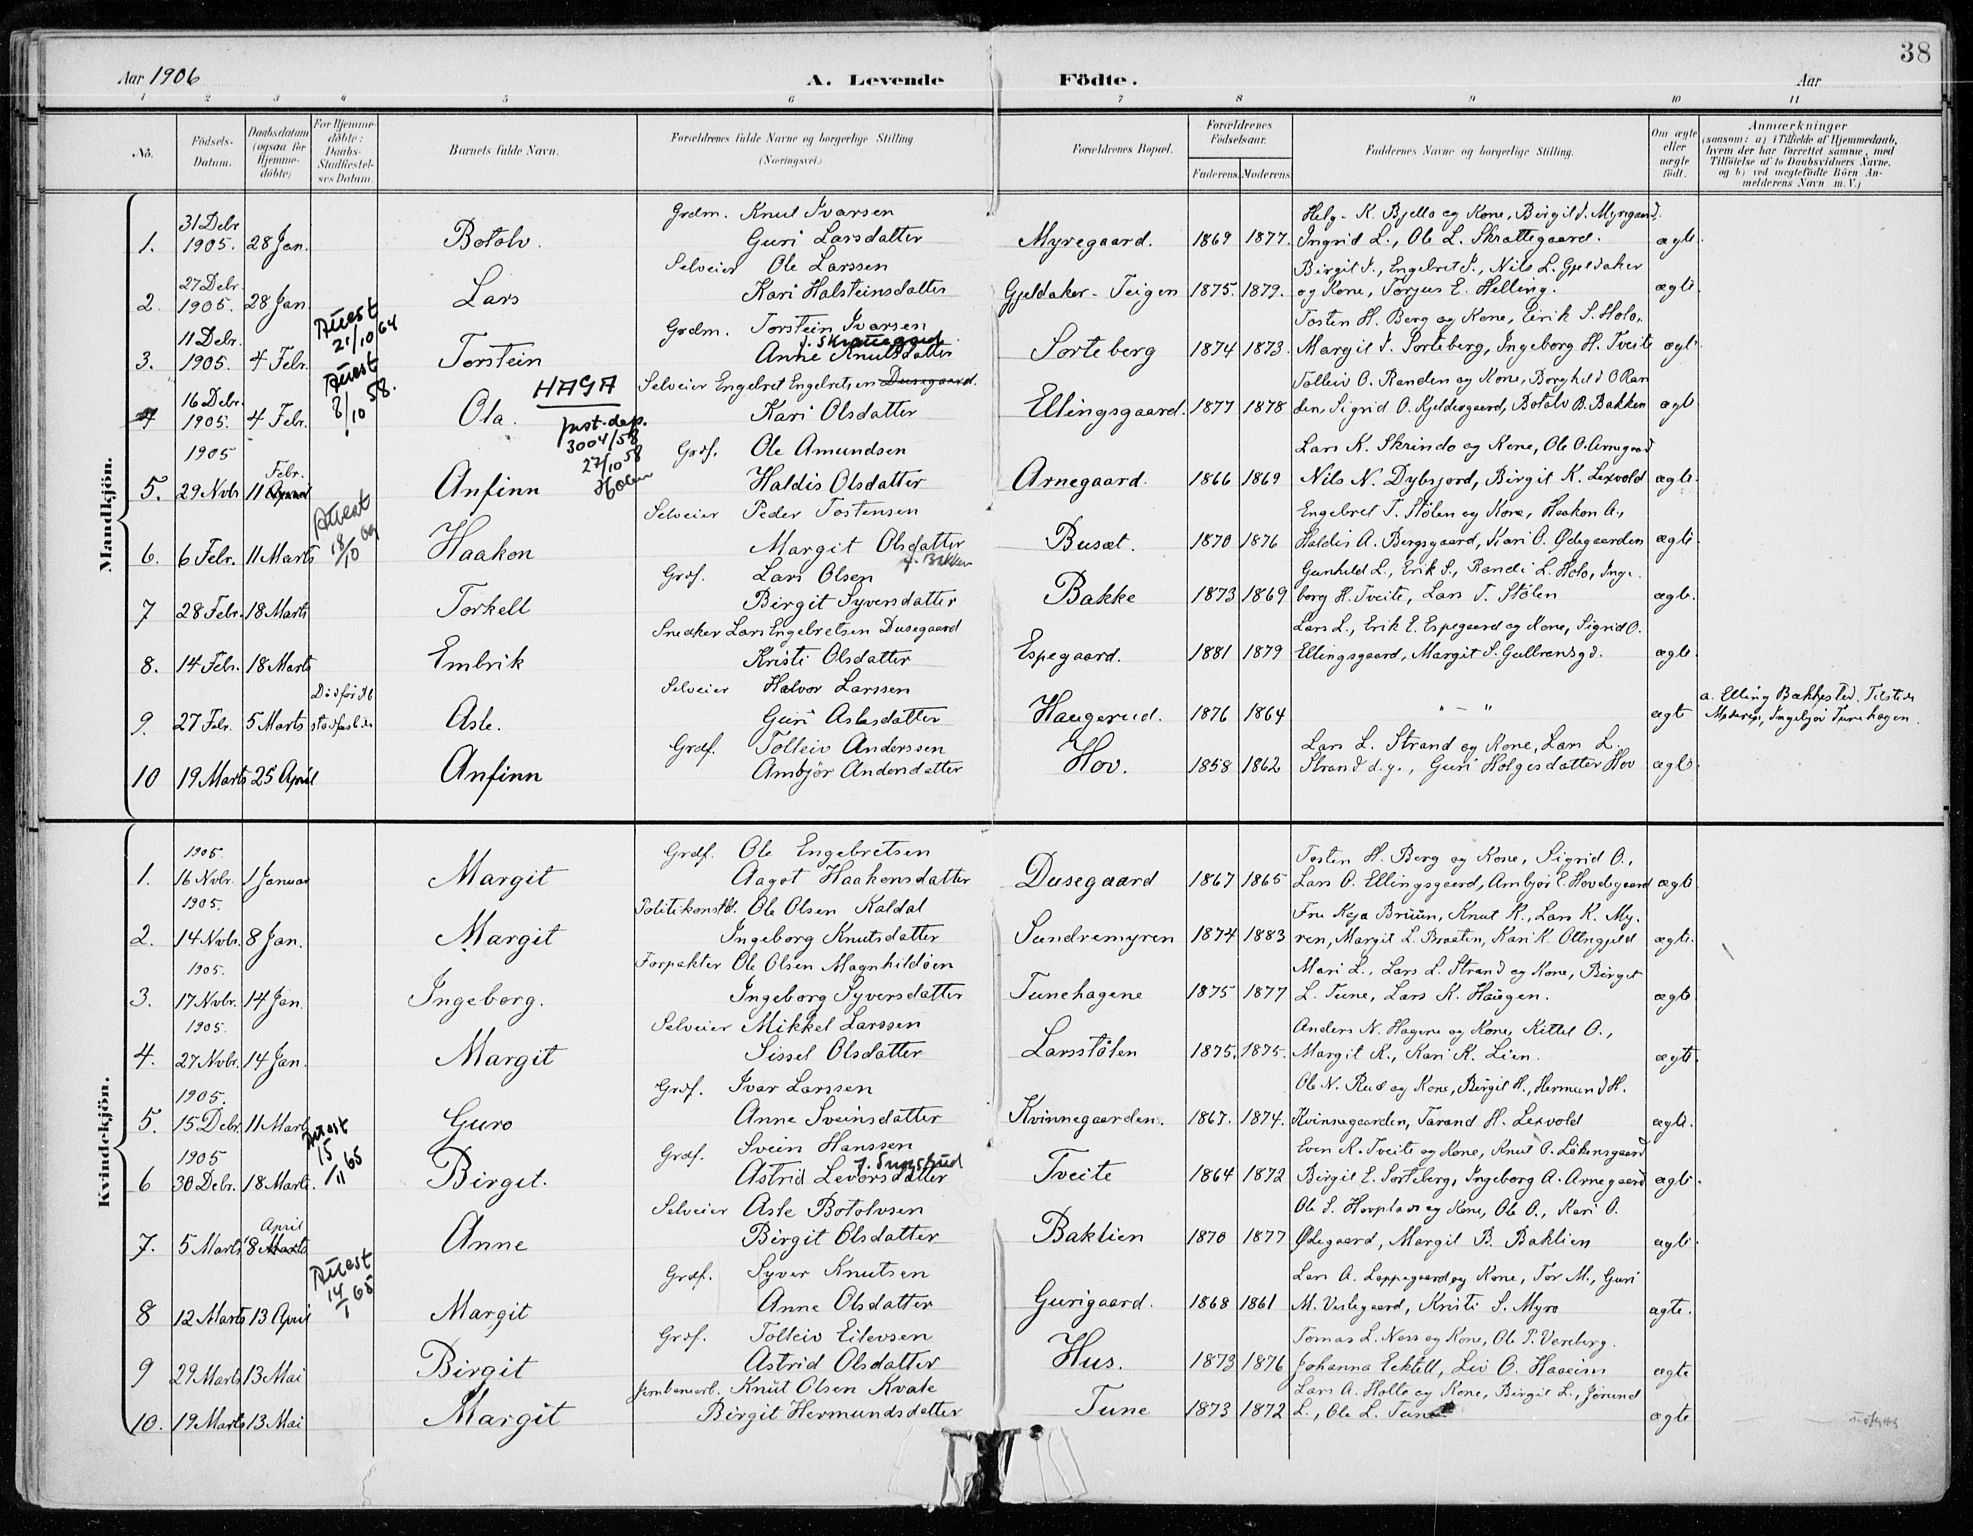 38
Aar 1906
A. Levende Födte.
Aar
1 2 3 4 5 6 7 8 9 10 11
No.
Födsels-Datum.
Daabsdatum (ogsaa for Hjemmedöbte;
For Hjemmedöbte: Daabs-Stadfæstelses Datum.
Barnets fulde Navn.
Forældrenes fulde Navne og borgerlige Stilling (Næringsvei.)
Forældrenes Bopæl.
Forældrenes Födselsaar.
Faderens. Moderens.
Faddernes Navne og borgerlige Stilling.
Om ægte eller uægte födt.
Anmærkninger
(saasom: a) i Tilfælde af Hjemmedaab, hvem der har forrettet samme, med Tilföielse af to Daabsvidners Navne, og b) ved uægtefödte Börn Anmelderens Navn m. V.)
Mandkjön.
31 Debr. Grdm. Knut Ivarsen Helg. K. Bjella og Kone, Birgit I. Myregaard,
1. 1905. 28 Jan. Botolv. Guri Larsdatter Myregaard. 1869 1877. Ingrid L., Ole L. Skrattegaard. ægte.
27 Debr. Selveier Ole Larssen Birgit I., Engebret I., Nils L. Gjeldaker
2. 1905. 28 Jan. Lars Kari Halsteinsdatter Gjeldaker-Teigen 1875. 1879. og Kone, Torjus E. Helling. ægte.
11 Debr. Attest 21/10 64 Grdm. Torstein Ivarsen Tosten H. Berg og Kone, Eirik S. Holo,
3. 1905. 4 Febr. Torstein Anne Knutsdatter Sorteberg 1874 1873. Margit I. Sorteberg, Ingeborg H. Tveite ægte
16 Debr. Attest 8/10 58. HAGA Selveier Engebret Engebretsen Dusegaard. Tolleiv O. Randen og Kone, Borghild O Ran
4 1905. 4 Febr. Ola. Kari Olsdatter Ellingsgaard. 1877 1878 den, Sigrid O. Kjeldesgaard, Botolv B. Bakken ægte
Just.dep. 3004/58
27/10 58
Holm
1905 Grdf. Ole Amundsen Lars K. Skrindo og Kone, Ole O. Arnegaard
5. 29 Novbr. 11 Febr. Anfinn Haldis Olsdatter Arnegaard. 1866 1869 Nils N. Dybsjord, Birgit K. Lexvold ægte.
Attest 18/10 Selveier Peder Tostensen Engebret T. Stölen og Kone, Haakon A.,
6. 6 Febr. 11 Marts Haakon Margit Olsdatter f. Bakken Busæt. 1870 1876 Haldis A. Bergsgaard, Kari O. Ødegaarden ægte
Grdf. Lars Olsen Gunhild L., Erik S., Randi L. Holo, Inge-
7 28 Febr. 18 Marts Torkell Birgit Syversdatter Bakke 1873 1869 borg H. Tveite, Lars T. Stölen ægte.
Snedker Lars Engebretsen Dusegaard Lars L., Erik E. Espegaard og Kone, Sigrid O.
8. 14 Febr. 18 Marts Embrik Kristi Olsdatter Espegaard. 1881 1879 Ellingsgaard, Margit S. Gulbrandsgd. ægte
Död för St stadfæstelse Selveier Halvor Larssen a. Elling Bakkested. Tilstede
9. 27 Febr. 5 Marts Asle. Guri Aslesdatter Haugerud. 1876 1864 " — " ægte Moderen, Ingebjör Tunehagen.
Grdf. Tolleiv Anderssen Lars L. Strand og Kone, Lars L.
10 19 Marts 25 April Anfinn Ambjör Andersdatter Hov. 1858 1862 Strand d.y., Guri Holgesdatter Hov ægte.
Kvindekjön.
1905. Grdf. Ole Engebretsen Tosten H. Berg og Kone, Sigrid O.,
1. 16 Novbr. 1 Januar Margit Aagot Haakensdatter Dusegaard 1867 1865 Lars O. Ellingsgaard, Ambjör E. Hovdegaard ægte
1905. Politikonstb. Ole Olsen Kaldal Fru Kaja Brüün, Knut K., Lars K. My-
2. 14 Novbr. 8 Jan. Margit Ingeborg Knutsdatter Sundremyren 1874 1883 ren, Margit L. Braaten, Kari K. Ottngjeld ægte.
1905. Forpakter Ole Olsen Magnhildöen Mari L., Lars L. Strand og Kone, Birgit
3. 17 Novbr. 14 Jan. Ingeborg. Ingeborg Syversdatter Tunehagene 1875 1877 L. Tune, Lars K. Haugen. ægte
1905. Selveier Mikkel Larssen Anders N. Hagene og Kone, Kittel O.,
4. 27 Novbr. 14 Jan. Margit Sissel Olsdatter Larsstölen 1875. 1875. Margit K., Kari K. Lien. ægte.
1905. Grdf. Ivar Larssen Ole N. Rud og Kone, Birgit H., Hermund H.
5. 15 Debr. 11 Marts Guro Anne Sveinsdatter Kvinnegaarden. 1867. 1874. Kvinnegaarden, Tarand H. Lexvold ægte.
1905 Attest 15/11 65 Grdf. Svein Hanssen Even K. Tveite og Kone, Knut O. Lökensgaard
6 30 Debr. 18 Marts. Birgit. Astrid Levorsdatter Tveite 1864 1872 Birgit E. Sorteberg, Ingeborg A. Arnegaard ægte.
Selveier Asle Botolvsen Ole S. Hovpladsen og Kone, Ole O., Kari O.
7. 5 Marts 8 April Anne Birgit Olsdatter Baklien 1870 1877 Ødegaard, Margit B. Baklien ægte.
Attest 14/1 65 Grdf. Syver Knutsen Lars A. Leppegaard og Kone, Tor M., Guri
8 12 Marts 13 April Margit Anne Olsdatter Gurigaard. 1868 1861 M. Veslegaard, Kristi S. Myro ægte.
Grdf. Tolleiv Eilevsen Tomas L. Ness og Kone, Ole P. Vereberg.
9 29 Marts 13 Mai Birgit Astrid Olsdatter Hus. 1873 1876 Johanna Ecktell, Liv O. Haaeim ægte
Jernbanearb. Knut Olsen Kvale Lars A. Holto og Kone, Birgit L., Jörund
10. 19 Marts 13 Mai Margit Birgit Hermundsdatter Tune 1873 1872 L., Ole L. Tune ægte